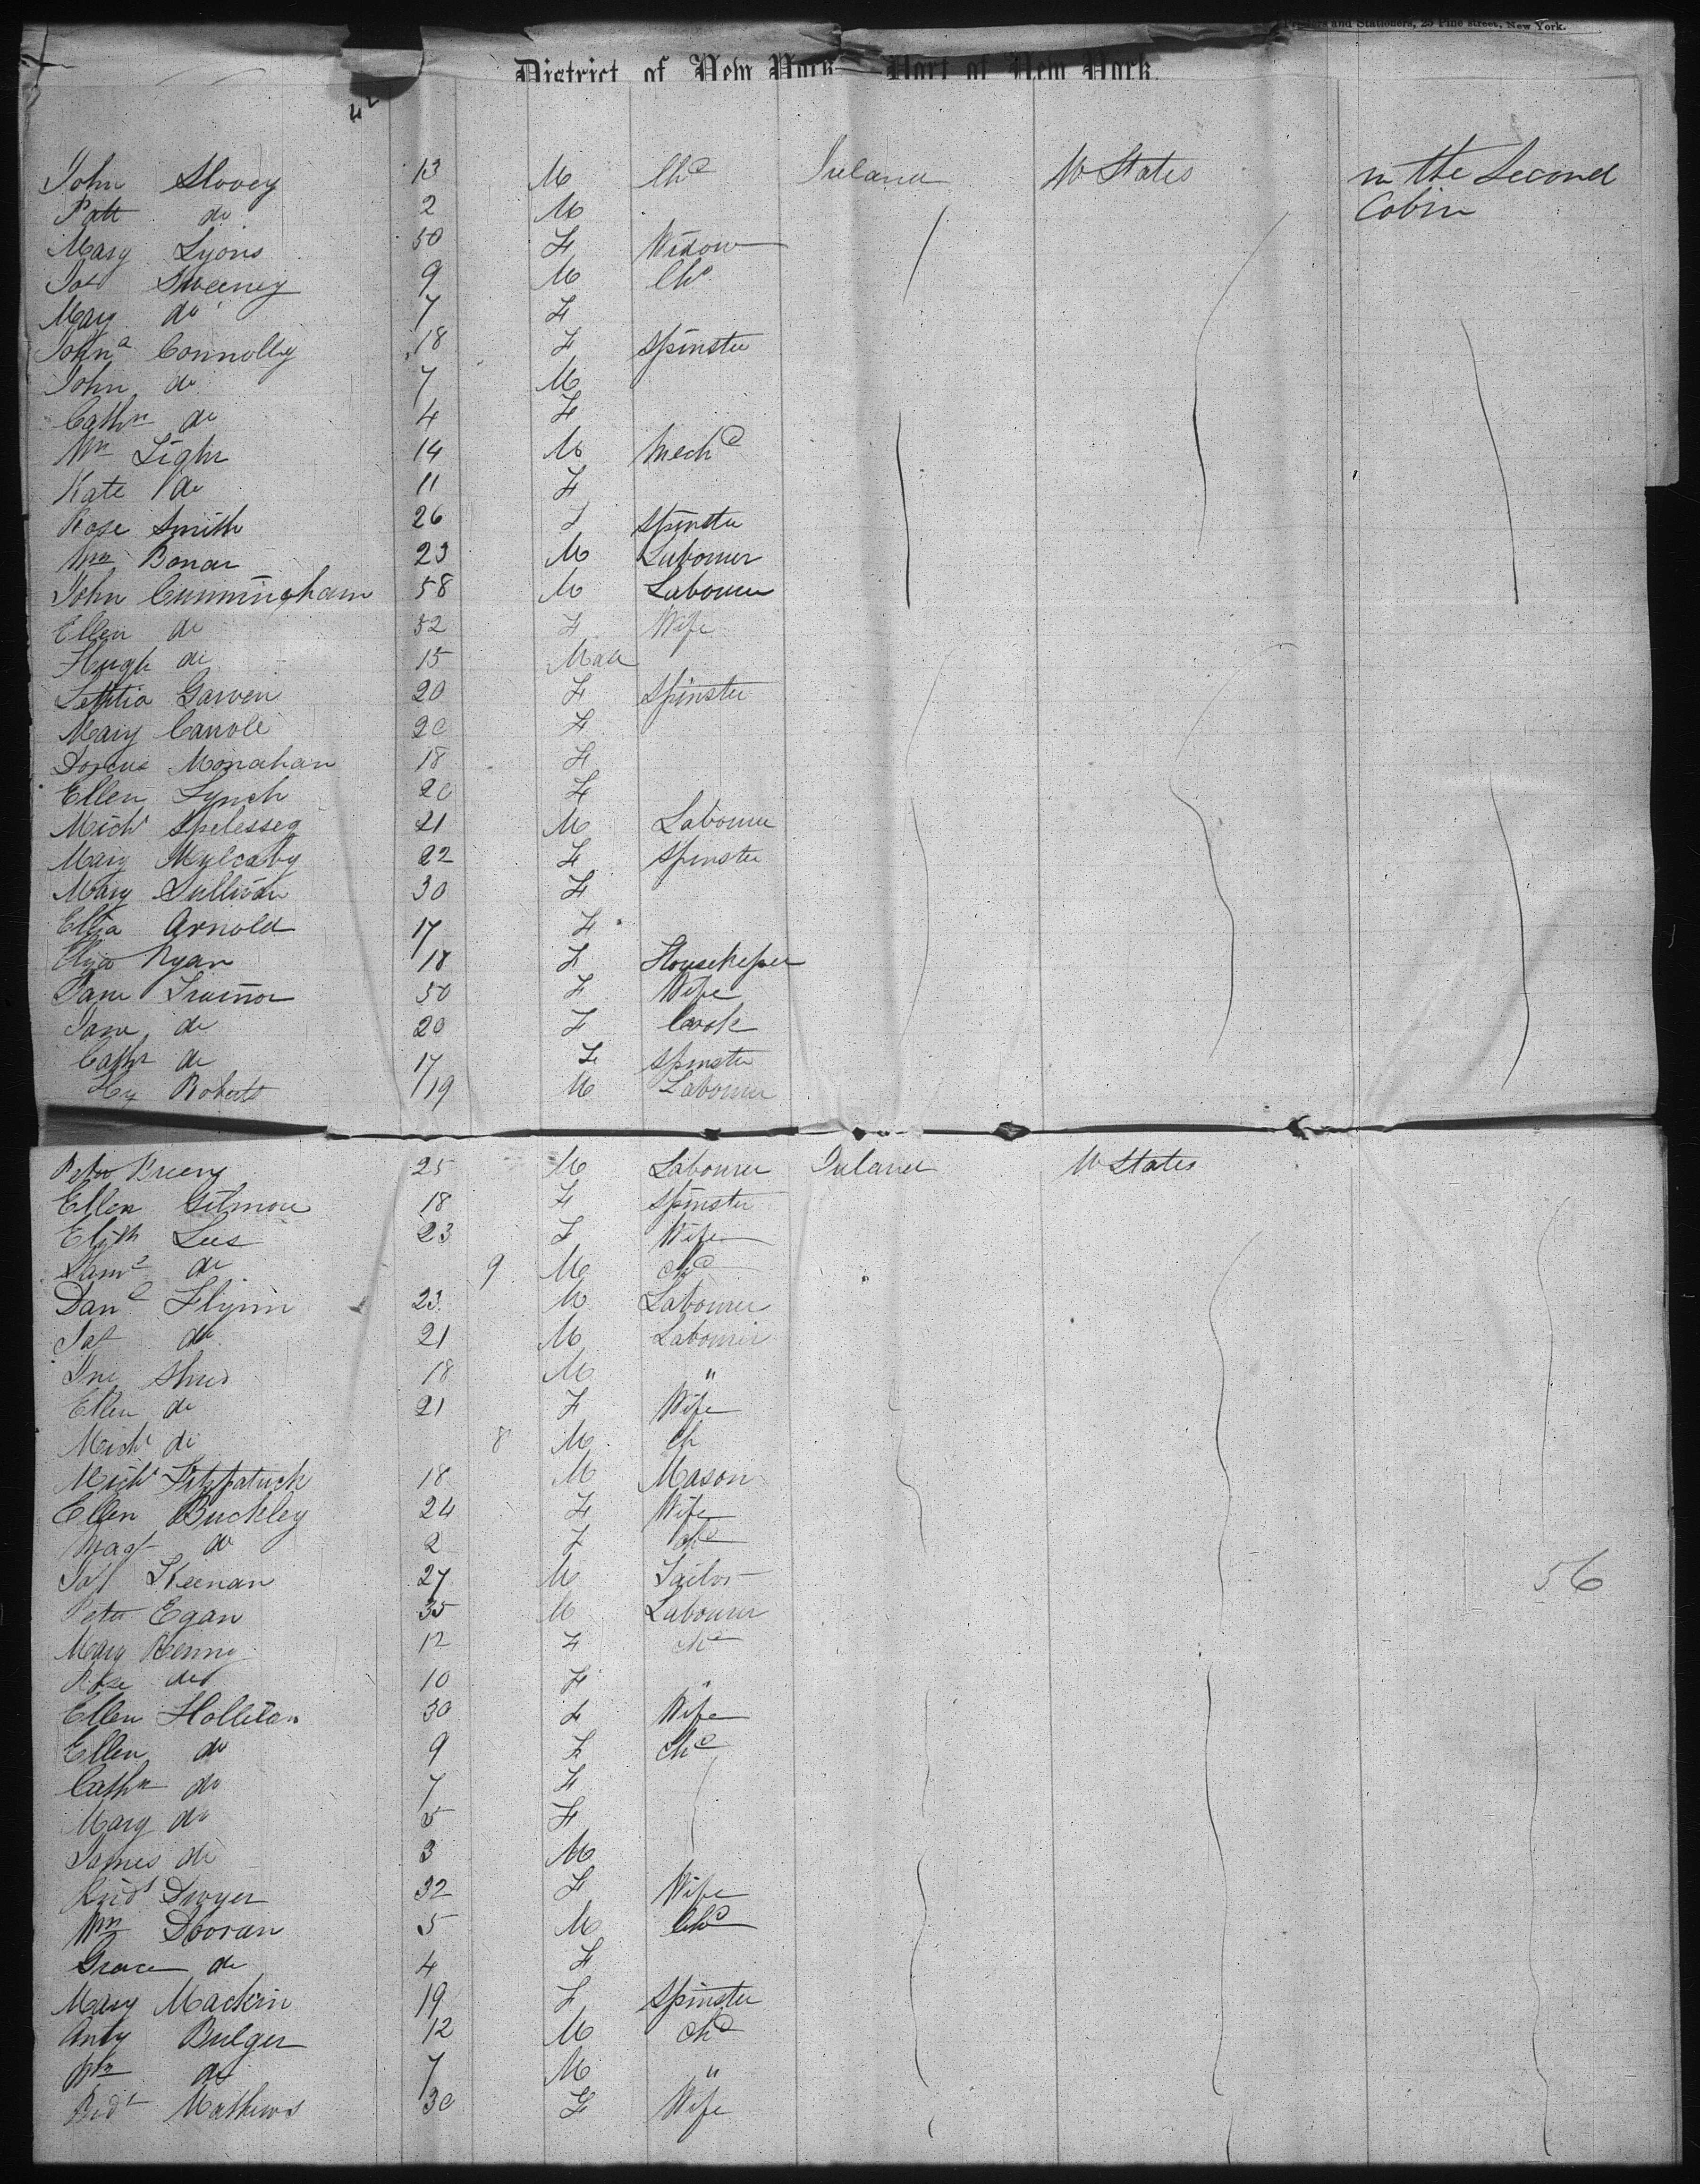 Printers and Stationers, 25 Pine street, New York.
District of New York — Port of New York.
John Slovey 13 M Chd Ireland U States in the Second
Patt do 2 M Cabin
Mary Lyons 50 F Widow
Jas Sweeney 9 M Chd
Mary do 7 F
Johna Connolly 18 F Spinster
John do 7 M
Cathn do 4 F
Wm Light 14 M Mechc
Kate do 11 F
Rose Smith 26 F Spinster
Wm Bonar 23 M Labourer
John Cunningham 58 M Labourer
Ellen do 52 F Wife
Hugh do 15 Male
Letitia Garven 20 F Spinster
Mary Carrole 20 F
Dorcus Monahan 18 F
Ellen Lynch 20 F
Michl Spelessey 21 M Labourer
Mary Mylcaby 22 F Spinster
Mary Sullivan 30 F
Eliza Arnold 17 F
Eliza Ryan 18 F Housekeper
Jane Trainor 50 F Wife
Jane do 20 F Cook
Cathn do 17 F Spinster
Hy Roberts 19 M Labourer
Peter Breeny 25 M Labourer Ireland U States
Ellen Gilmore 18 F Spinster
Elizth Lees 23 F Wife
Saml do 9 M Chd
Danl Flynn 23 M Labourer
Pat do 21 M Labourer
Jno 18 M "
Ellen do 21 F Wife
Michl do 8 M Ch
Michl Fitzpatrick 18 M Mason
Ellen Buckley 24 F Wife
Magt do 2 F Chd
Jas Keenan 27 M Tailor 56
Peter Egan 35 M Labourer
Mary Kenny 12 F Chd
Rose do 10 F "
Ellen Holliton 30 F Wife
Ellen do 9 F Chd
Cathn do 7 F
Mary do 5 F
James do 3 M
Bridt Dwyer 32 F Wife
Wm Dooran 5 M Chd
Grace do 4 F
Mary Mackin 19 F Spinster
Anty Bulger 12 M Chd
Wm do 7 M "
Bridt Mathews 30 F Wife